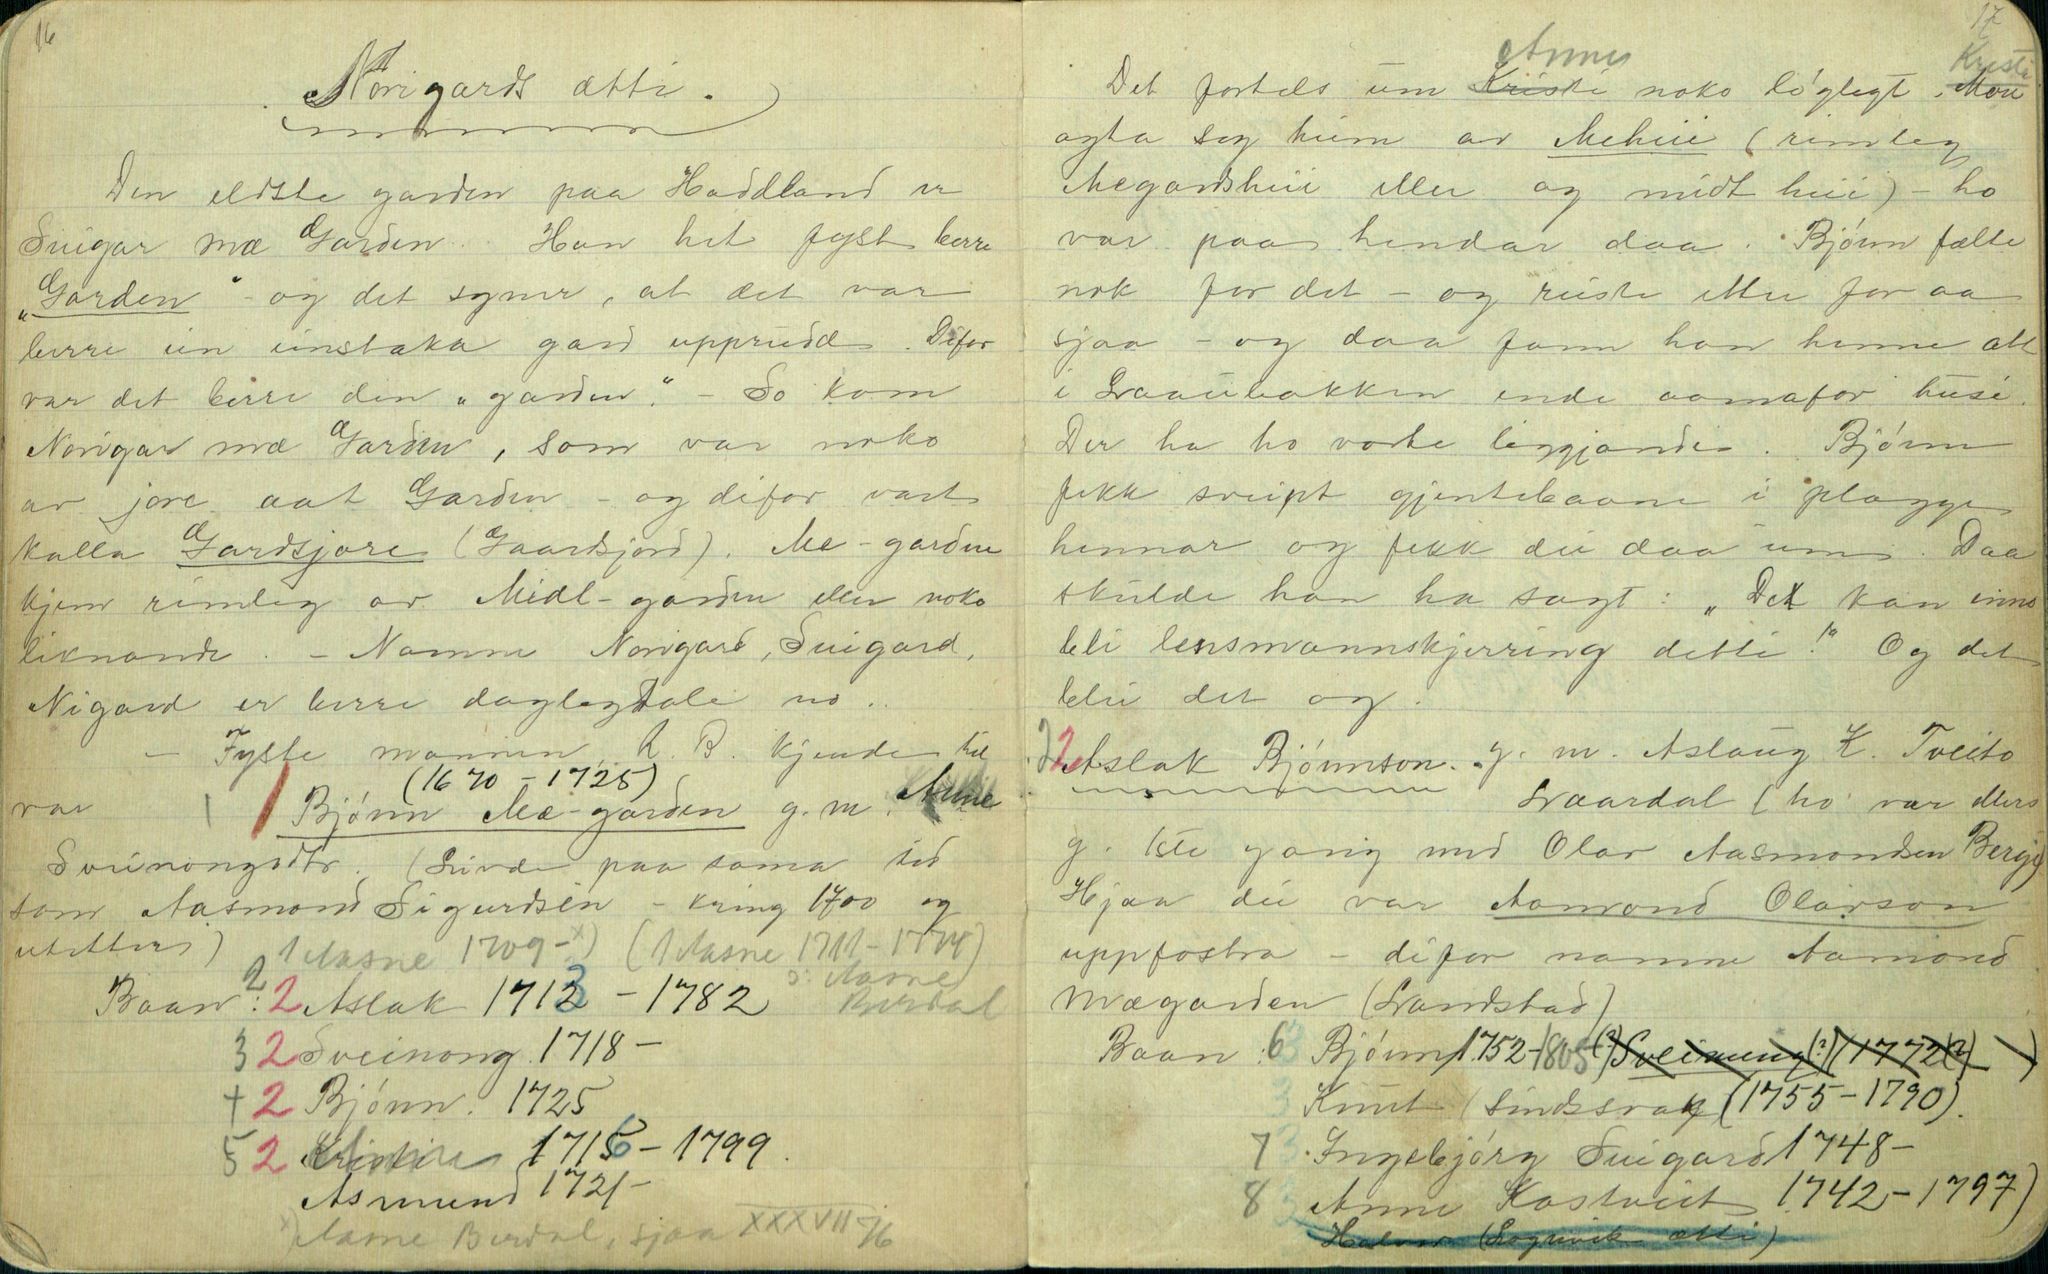 16
Norigards ætti.
Den eldste garden paa Haddland er
Suigar mæ Garden. Han het fyst berre
„Garden“ - og det syner, at det var
berre ein einstaka gard upprudd. Difor
var det berre den „garden“. - So kom
Norigar mæ Garden, som var noko
av jore aat Garden - og difor vart
kalla Gardsjore (Gaardsjord). Me-garden
kjem rimleg av Midl-garden eller noko
liknande. - Namne Norigard, Suigard,
Nigard er berre daglegtale no.
- Fyste mannen R. B. kjende til
(1670 - 1725)
var 1 Bjónn Mæ-garden g. m. Anne
Sveinongsdtr. (Livde paa sama tid
som Aasmond Sigurdsen - kring 1700 og
utetter)
1 Aasne 1709 - x) (1 Aasne 1711 -
Baan: 2 2 Aslak 1713 - 1782 Aasne Berdal
3 2 Sveinong 1718 -
2 Bjónn. 1725
5 2 1716 - 1799.
Asmund 1721 -
x) Aasne Berdal, sjaa XXXVII 76
17
Det fortels um Kristi Annes noko lóglegt. Mori Kristi
agta seg heim av Mehui (rimleg
Megardshui eller og midt hui) - ho
var paa hendar daa. Bjónn fælte
nok for det - og ruste etter for aa
sjaa - og daa fann han henne att
i Lraaubakken ende aamafor husi.
Der ha ho vorte liggjande. Bjónn
fekk sveipt gjentebaane i plagge
hennar og fekk dei daa inn. Daa
skulde han ha sagt: „Det kan inno
bli lensmannskjerring detti!“ Og det
blei det og.
2 2 Aslak Bjónnson. g. m. Aslaug K. Tveito
Lraardal (ho var ellers
g. 1ste gang med Olav Aasmondsen Berge)
Hjaa dei var Aamond Olavson
uppfostra - difor namne Aamond
mægarden (Landstad)
Baan: 6 3 Bjónn 1752 - 1805 (?) Sveinung (?) (1772 (?) )
3 Knut (Sindsrak (1755 - 1790).
7 3 Ingebjórg Suigard 1748 -
8 3 Anne Kostveit 1742 - 1797)
Halvor (Lognvik ætti)